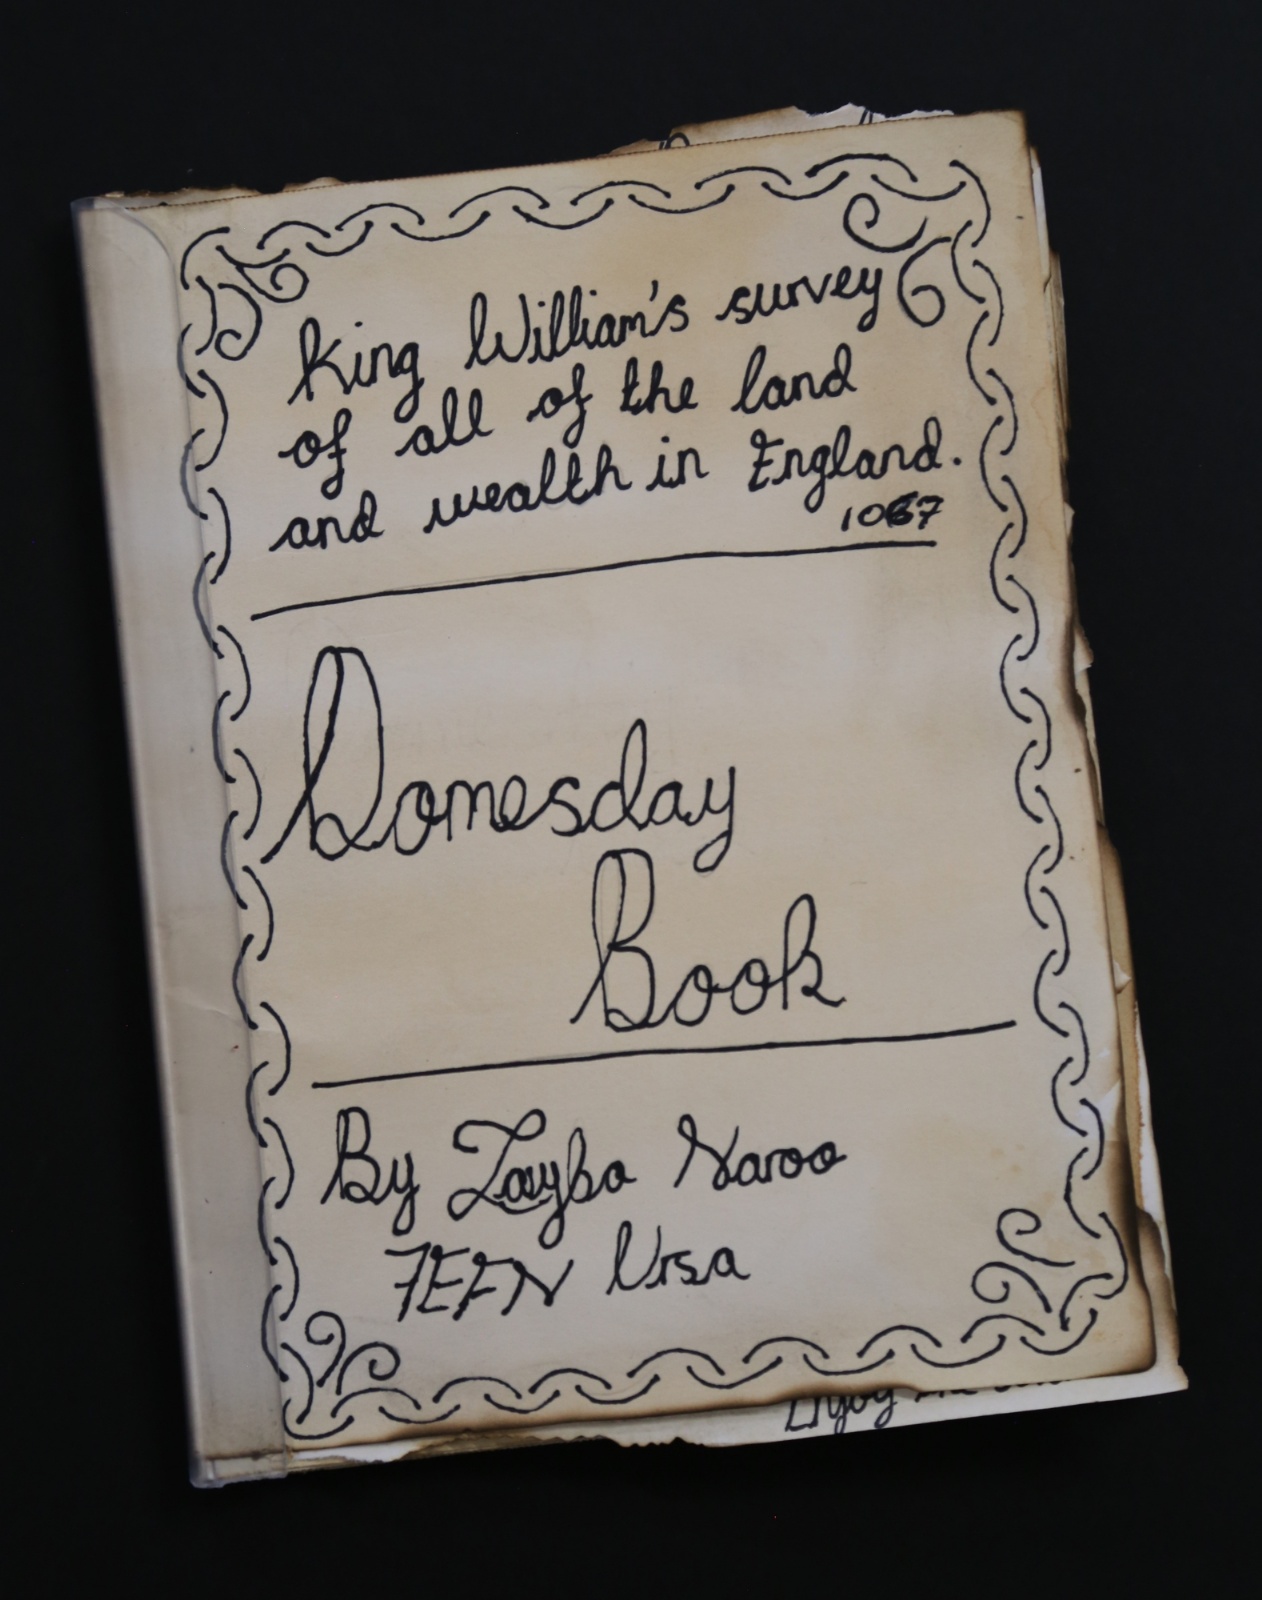 King William's survey
of all of the land
and wealth in England.
1067
Domesday
Book
By Zayba Naroo
7EFN Ursa
Enjoy the